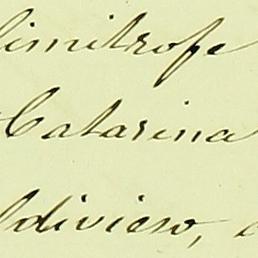 limitrofe
Catarina
ldivieso,